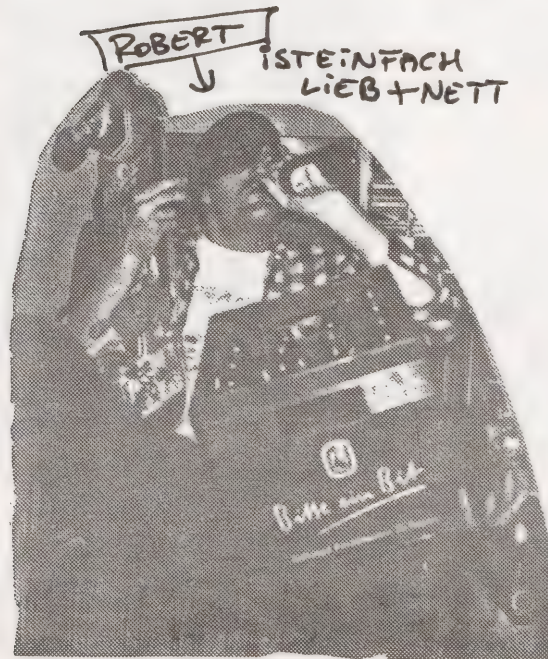 ROBERT
ISTEINFACH
LIEB + NETT
Bitte ein Bit